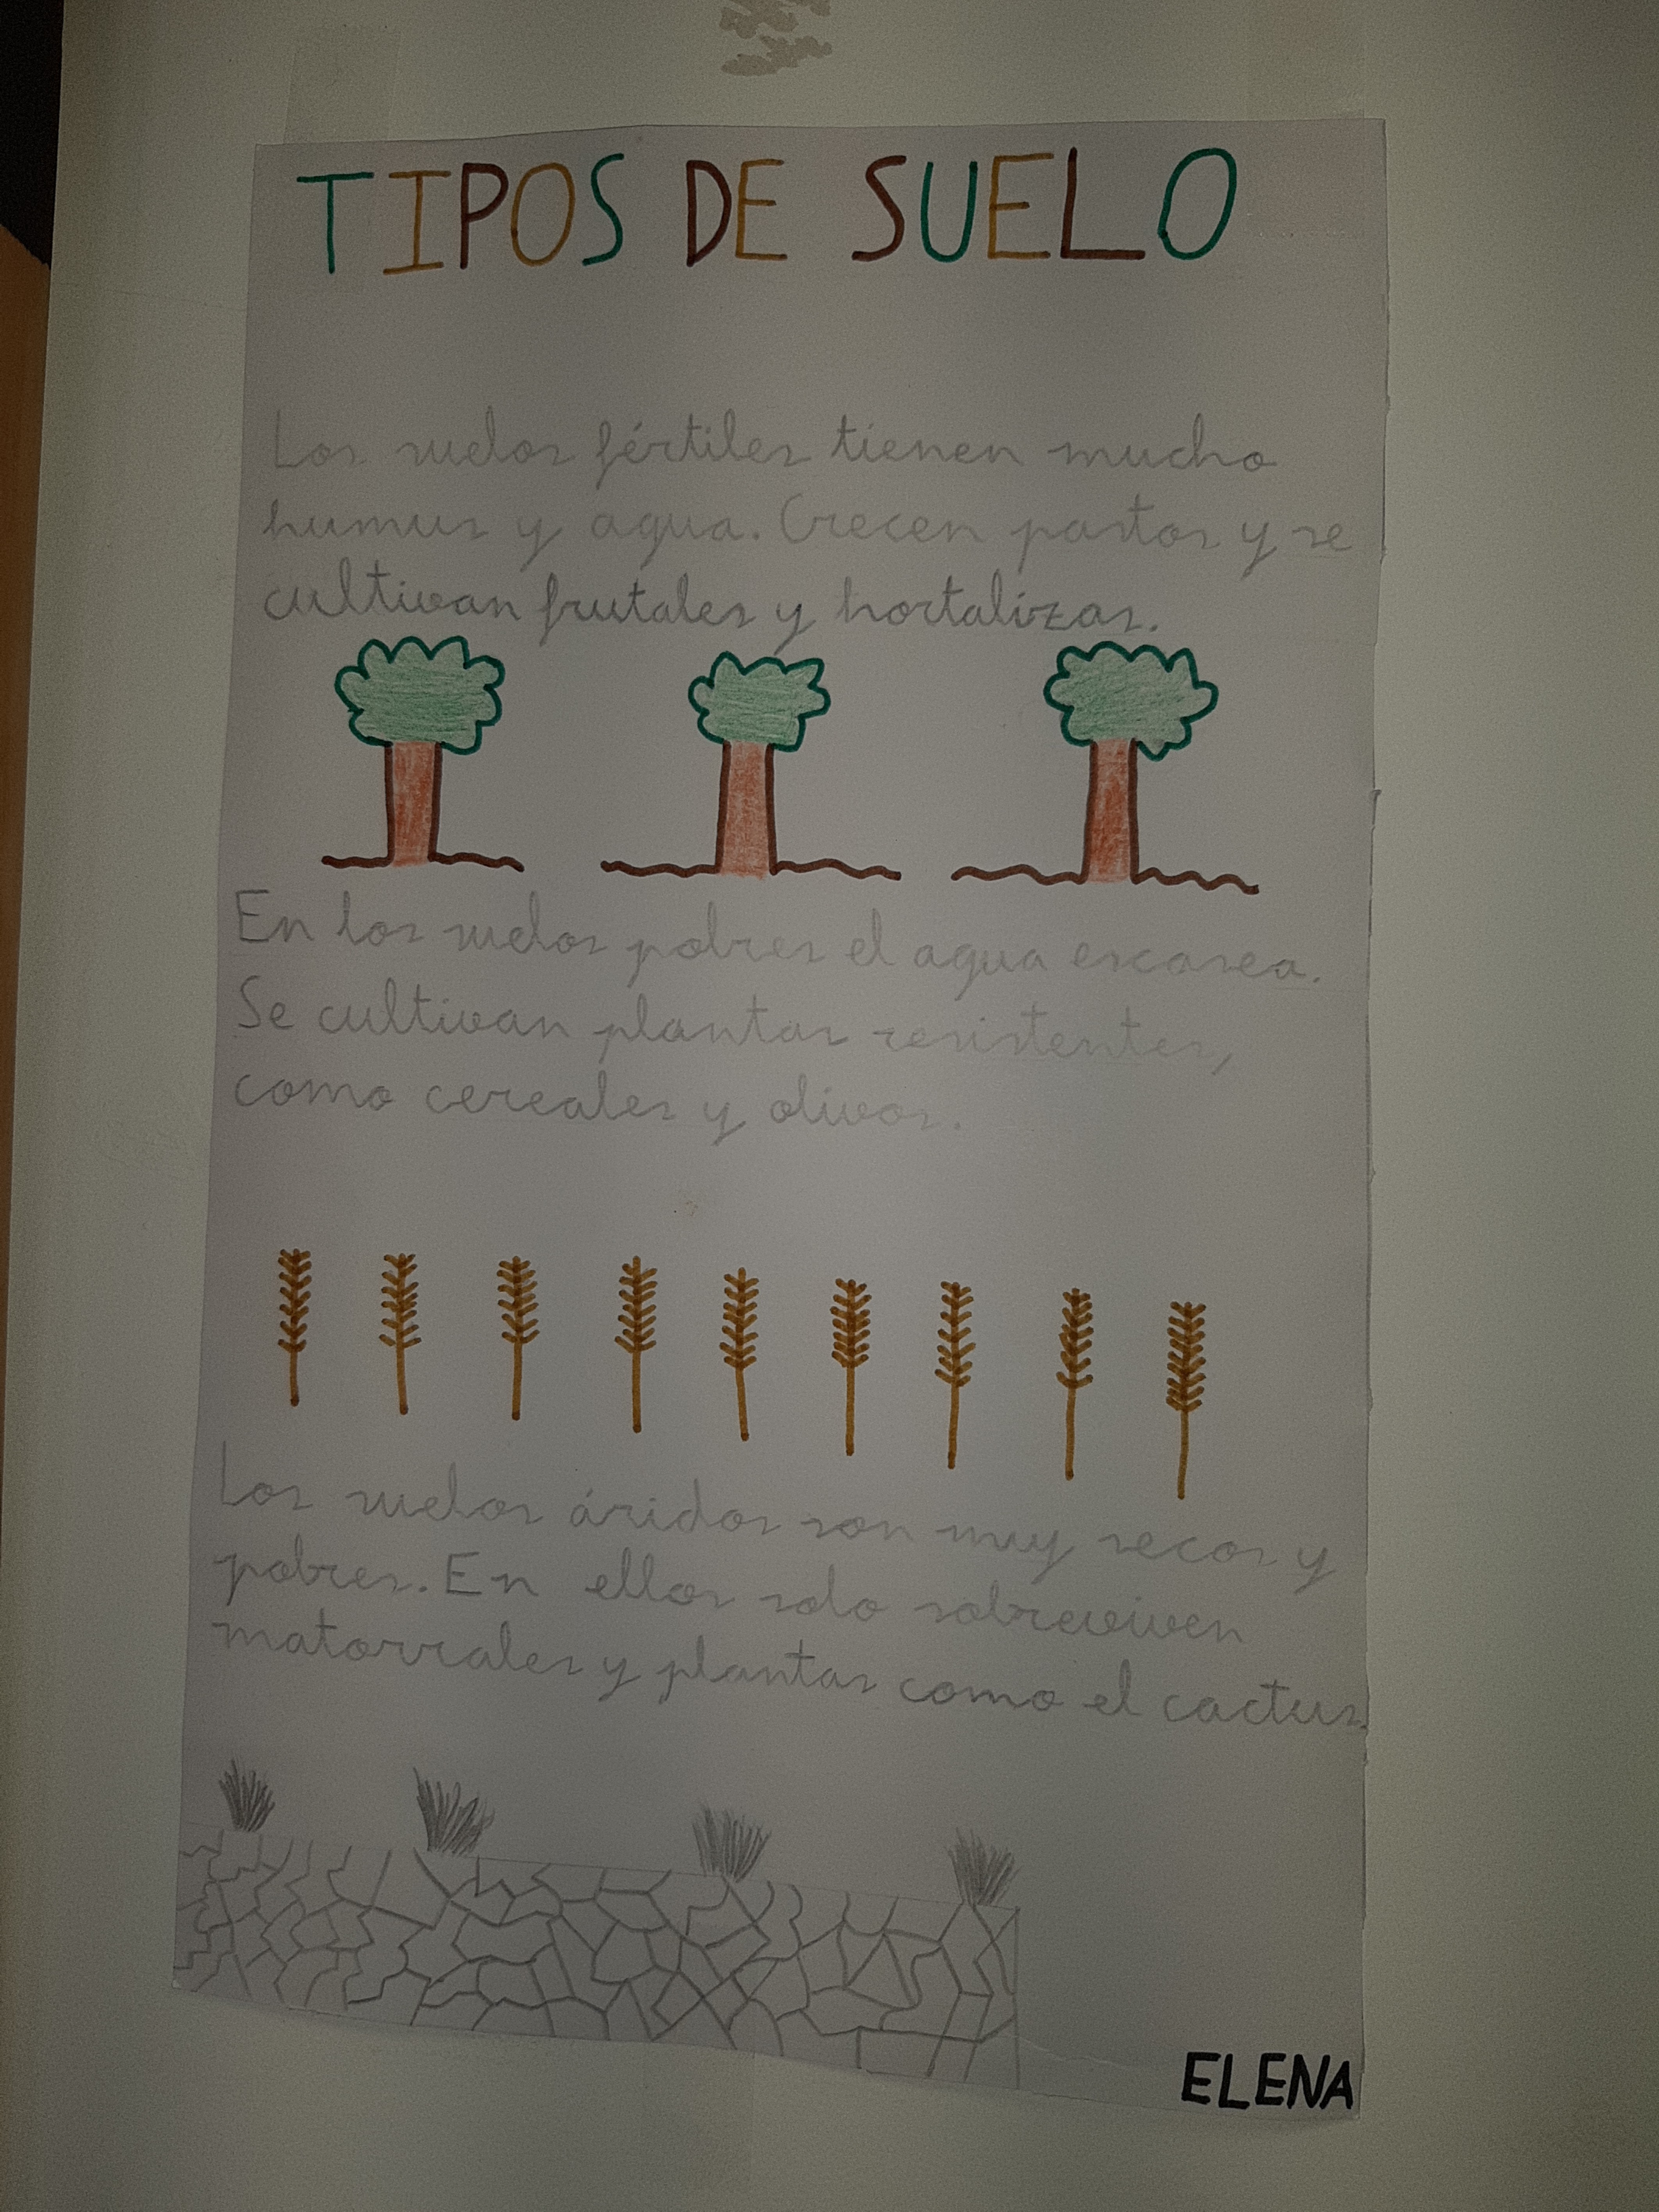 TIPOS DE SUELO
Los suelos fértiles tienen mucho
humus y agua. Crecen pastos y se
cultivan frutales y hortalizas.
En los suelos pobres el agua escasea.
Se cultivan plantas resistentes,
como cereales y olivos.
Los suelos áridos son muy secos y
pobres. En ellos solo sobreviven
matorrales y plantas como el cactus.
ELENA